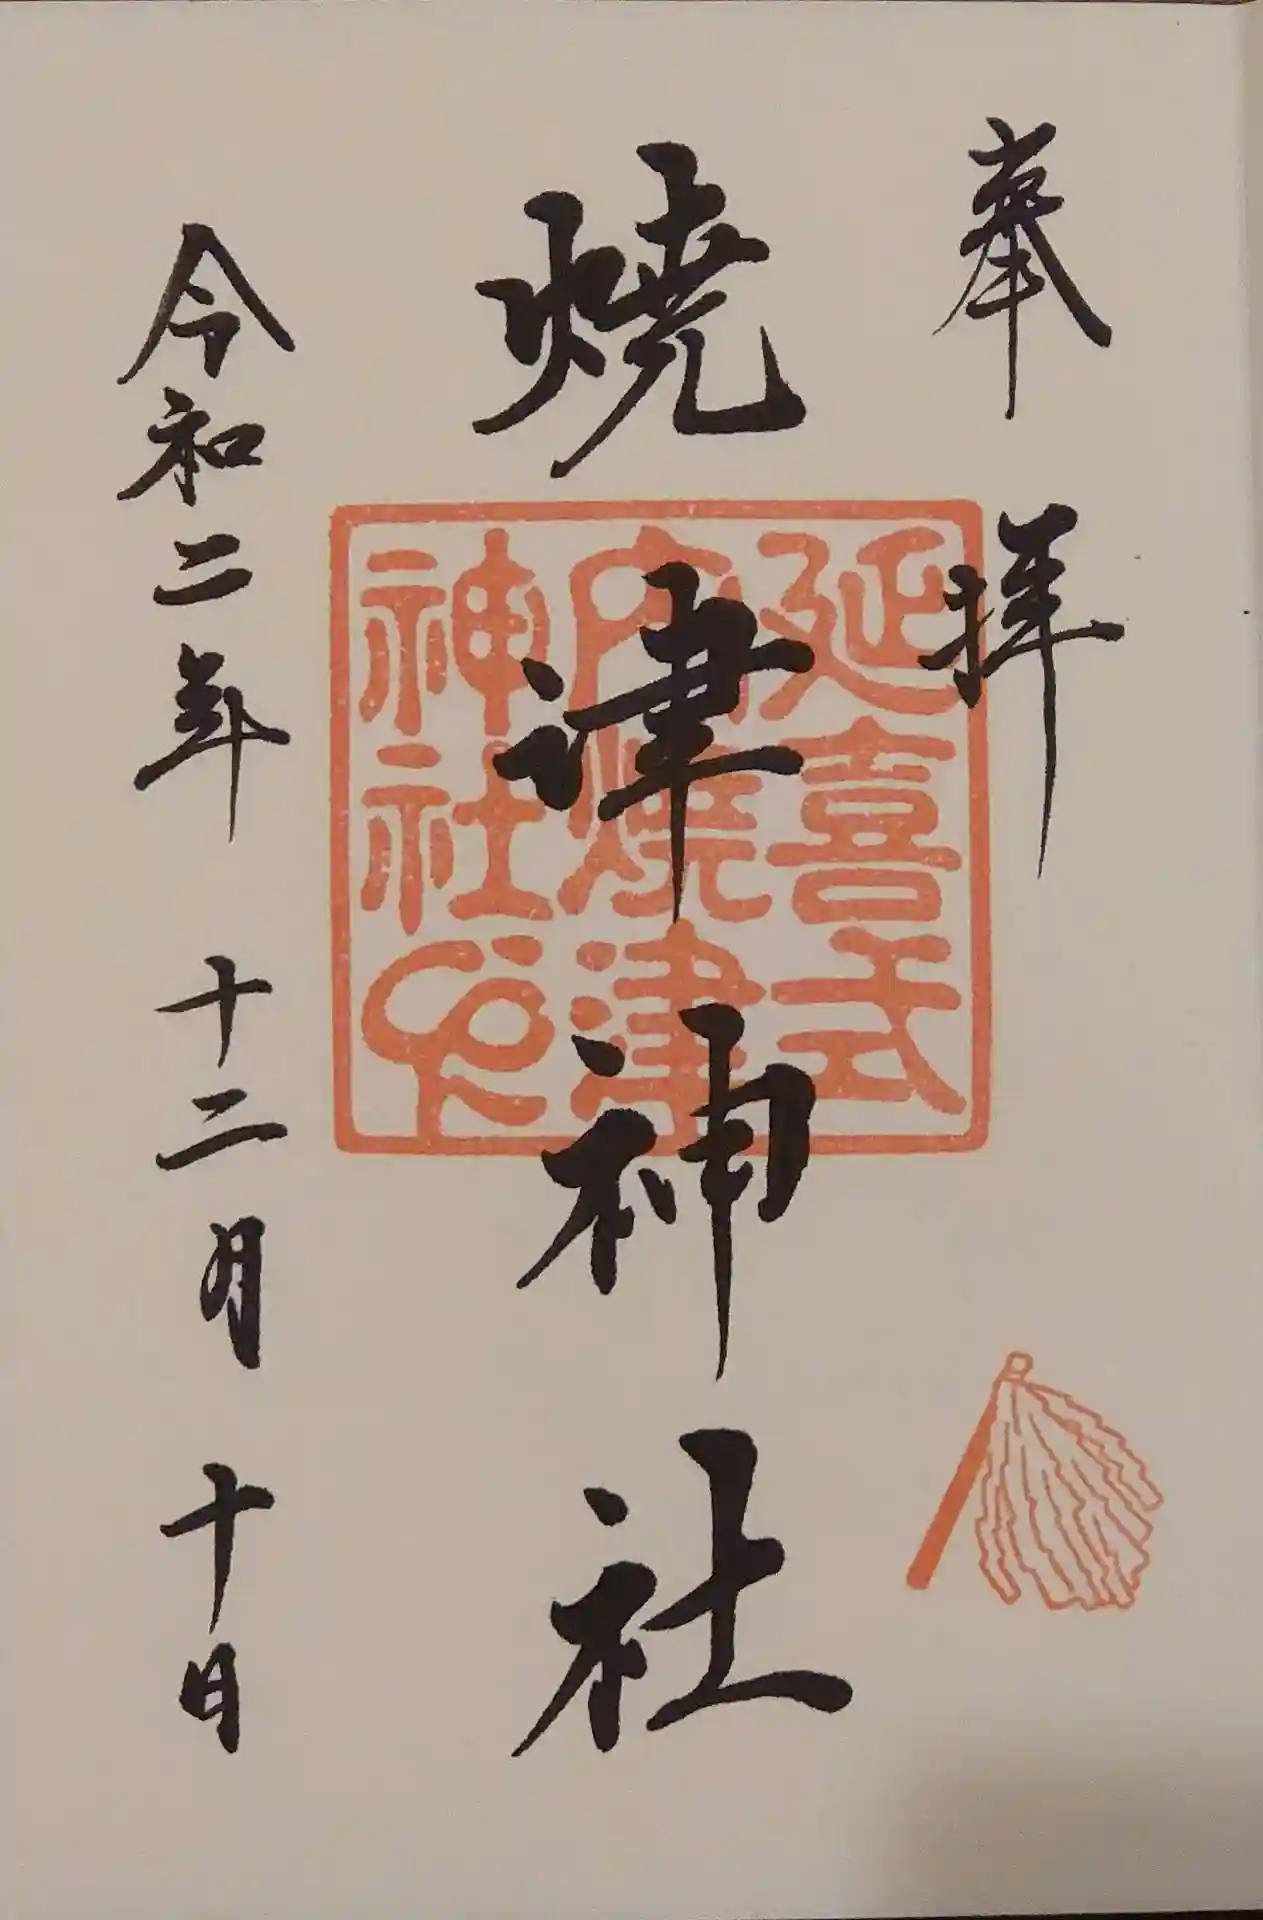 奉拝
焼津神社
令和二年 十二月 十日
延喜式
内焼津
神社印